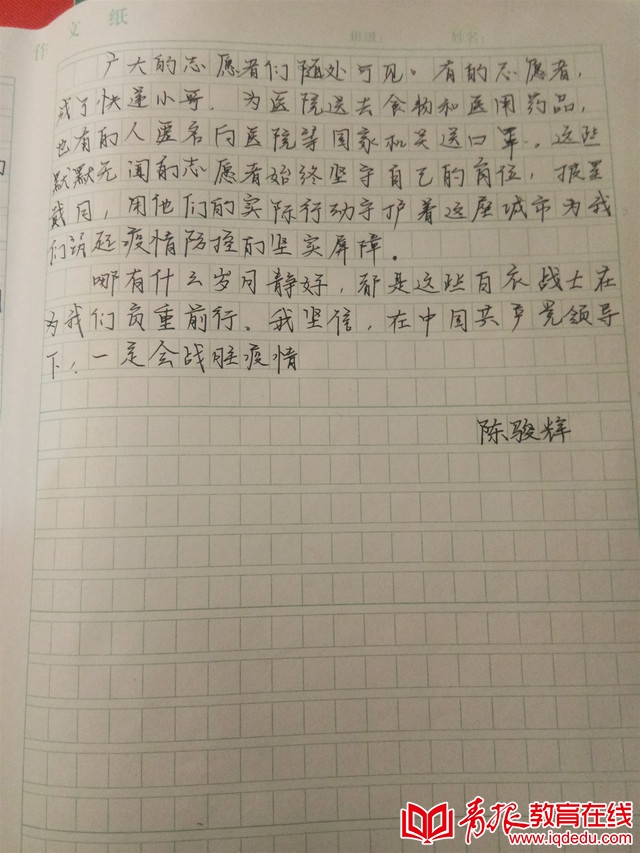 作文纸
班级： 姓名：
广大的志愿者们随处可见。有的志愿者，
成了快递小哥，为医院送去食物和医用药品，
也有的人匿名向医院等国家机关送口罩。这些
默默无闻的志愿者始终坚守自己的岗位，披星
戴月，用他们的实际行动守护着这座城市为我
们筑起疫情防控的坚实屏障。
哪有什么岁月静好，都是这些白衣战士在
为我们负重前行。我坚信，在中国共产党领导
下，一定会战胜疫情
陈骏辉
青报教育在线
www.iqdedu.com